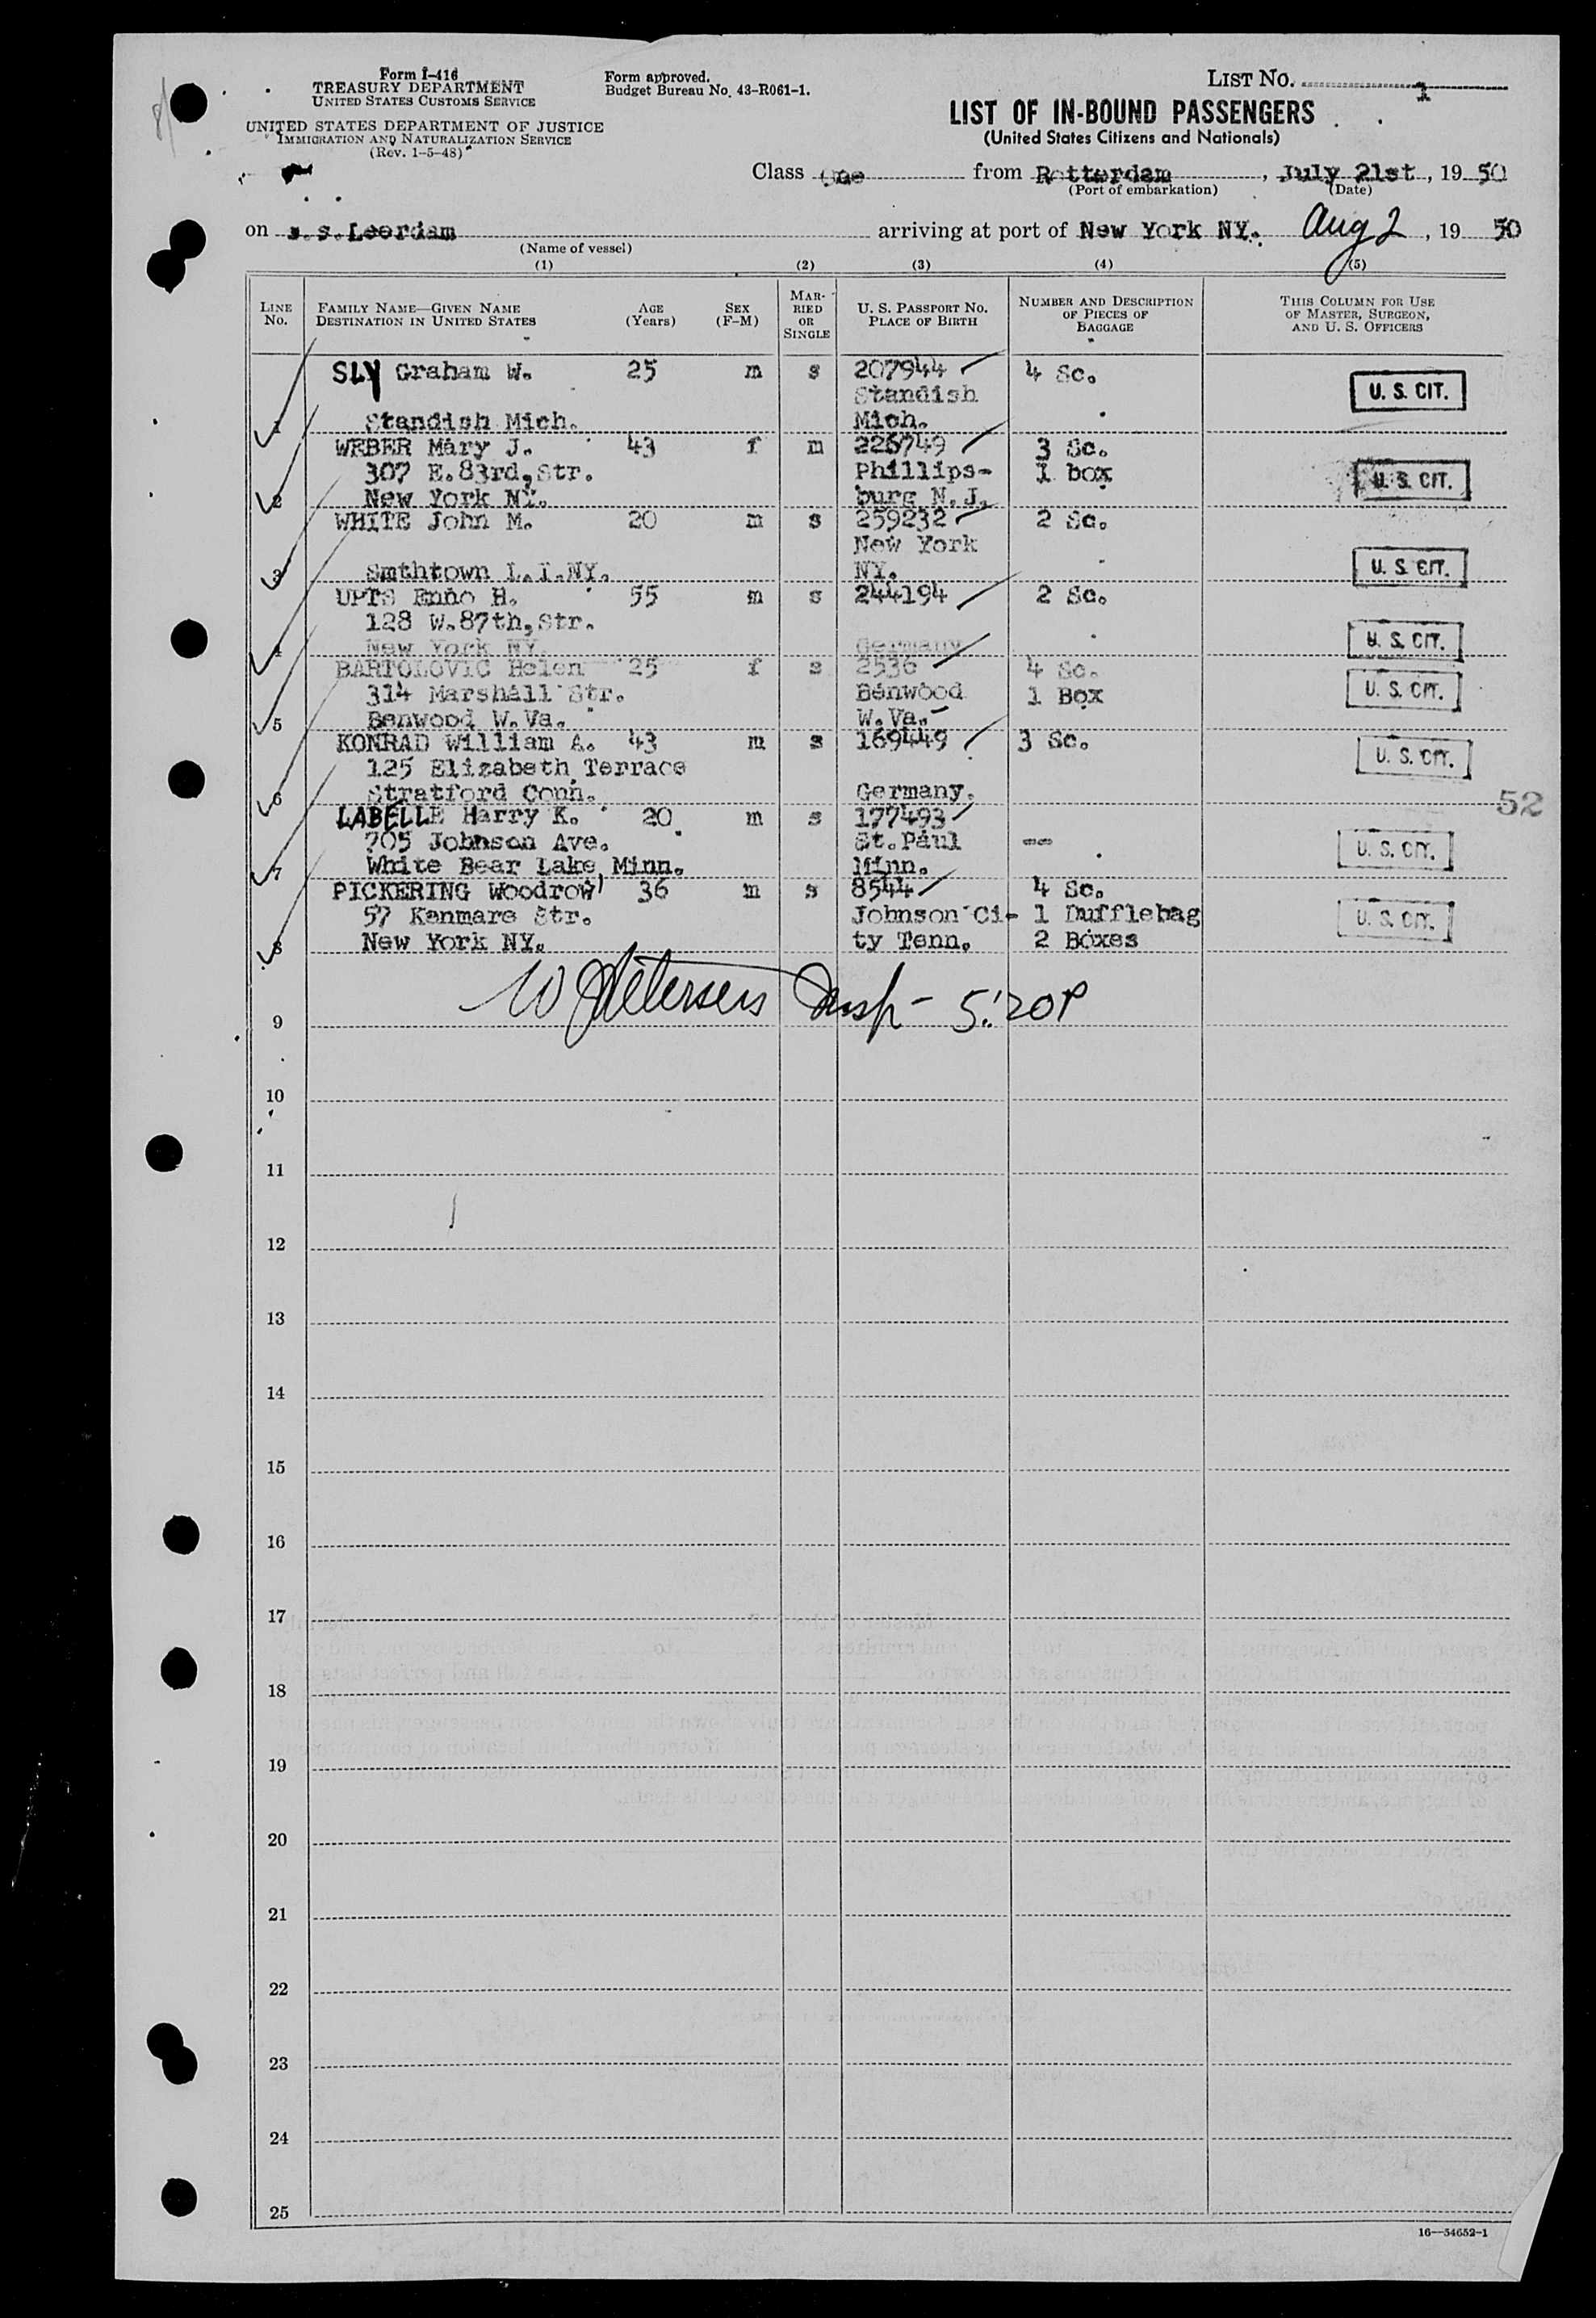 Form I-416
TREASURY DEPARTMENT
UNITED STATES CUSTOMS SERVICE
UNITED STATES DEPARTMENT OF JUSTICE
IMMIGRATION AND NATURALIZATION SERVICE
(Rev. 1-5-48)
Form approved.
Budget Bureau No. 43-R061-1.
LIST NO. 1
LIST OF IN-BOUND PASSENGERS
(United States Citizens and Nationals)
Class One from Rotterdam, July 21st, 19 50
(Port of embarkation) (Date)
on s.s.Leerdam arriving at port of New York NY. Aug 2, 19 50
(Name of vessel)
(1) (2) (3) (4) (5)
LINE No. FAMILY NAME—GIVEN NAME DESTINATION IN UNITED STATES AGE (Years) SEX (F-M) MARRIED OR SINGLE U. S. PASSPORT NO. PLACE OF BIRTH NUMBER AND DESCRIPTION OF PIECES OF BAGGAGE THIS COLUMN FOR USE OF MASTER, SURGEON, AND U. S. OFFICERS
SLY Graham W. 25 m s 207944 4 Sc.
Standish U. S. CIT.
1 Standish Mich. Mich.
WEBER Mary J. 43 f m 226749 3 Sc.
307 E.83rd,Str. Phillips- 1 box U. S. CIT.
2 New York NY. burg N.J.
WHITE John M. 20 m s 259232 2 Sc.
New York
3 Smthtown L.I.NY. NY. U. S. CIT.
UPTS Enno H. 55 m s 244194 2 Sc.
128 W.87th,Str.
4 New York NY. Germany U. S. CIT.
BARTOLOVIC Helen 25 f s 2536 4 Sc.
314 Marshall Str. Benwood 1 Box U. S. CIT.
5 Benwood W.Va. W.Va.
KONRAD William A. 43 m s 169449 3 Sc.
125 Elizabeth Terrace U. S. CIT.
6 Stratford Conn. Germany.
52
LABELLE Harry K. 20 m s 177493
705 Johnson Ave. St.Paul -- U. S. CIT.
7 White Bear Lake Minn. Minn.
PICKERING Woodrow 36 m s 8544 4 Sc.
57 Kenmare Str. Johnson Ci- 1 Dufflebag U. S. CIT.
8 New York NY. ty Tenn. 2 Boxes
Petersen Insp- 5:20P
9
10
11
12
13
14
15
16
17
18
19
20
21
22
23
24
25
16—54652-1